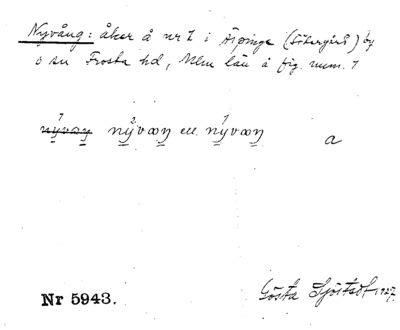 Nyvång: åker å nr 1 i Äspinge (Södergård) by
o sn Frosta hd, Mlm län å fig. num. 7
n̲y̲væŋ ny̲væŋ ell. ny̲væŋ a
Nr 5943.
Gösta Sjöstedt 1927.